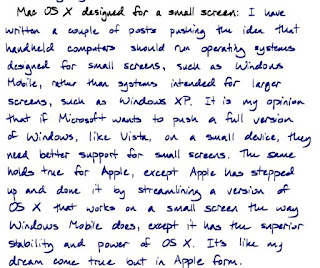 Mac OS X designed for a small screen: I have
written a couple of posts pushing the idea that
handheld computers should run operating systems
designed for small screens, such as Windows
Mobile, rather than systems intended for larger
screens, such as Windows XP. It is my opinion
that if Microsoft wants to push a full version
of Windows, like Vista, on a small device, they
need better support for small screens. The same
holds true for Apple, except Apple has stepped
up and done it by streamlining a version of
OS X that works on a small screen the way
Windows Mobile does, except it has the superior
stability and power of OS X. Its like my
dream come true but in Apple form.